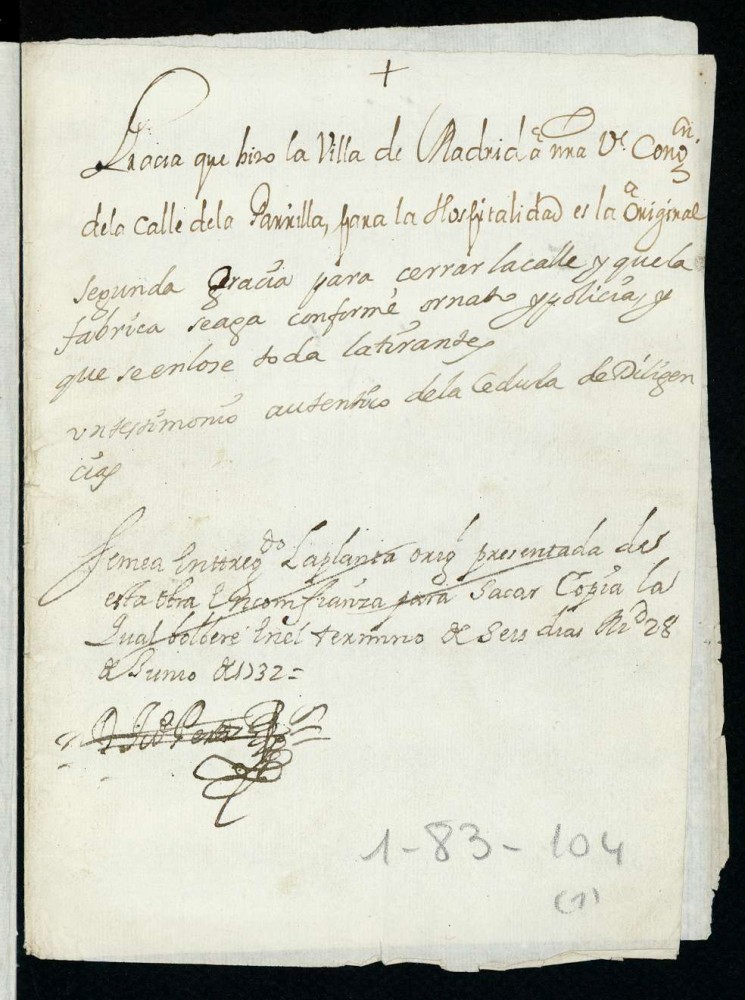 +
Gracia que hizo la Villa de Madrid â nra Ve. Congn.
dela Calle dela Parrilla, para la Hospitalidad es la Original
segunda gracia para cerrar lacalle y quela
fabrica seaga conforme ornato y policia, y
que seenlose toda latirante
un testimonio autentico dela Cedula de Diligen
cias
Semea Entregdo Laplanta orig presentada des
esta obra Enconfianza para Sacar Copia la
Qual bolbere Enel termino de Seis dias Md 28
de Junio de 1732 =
1-83-104
(1)